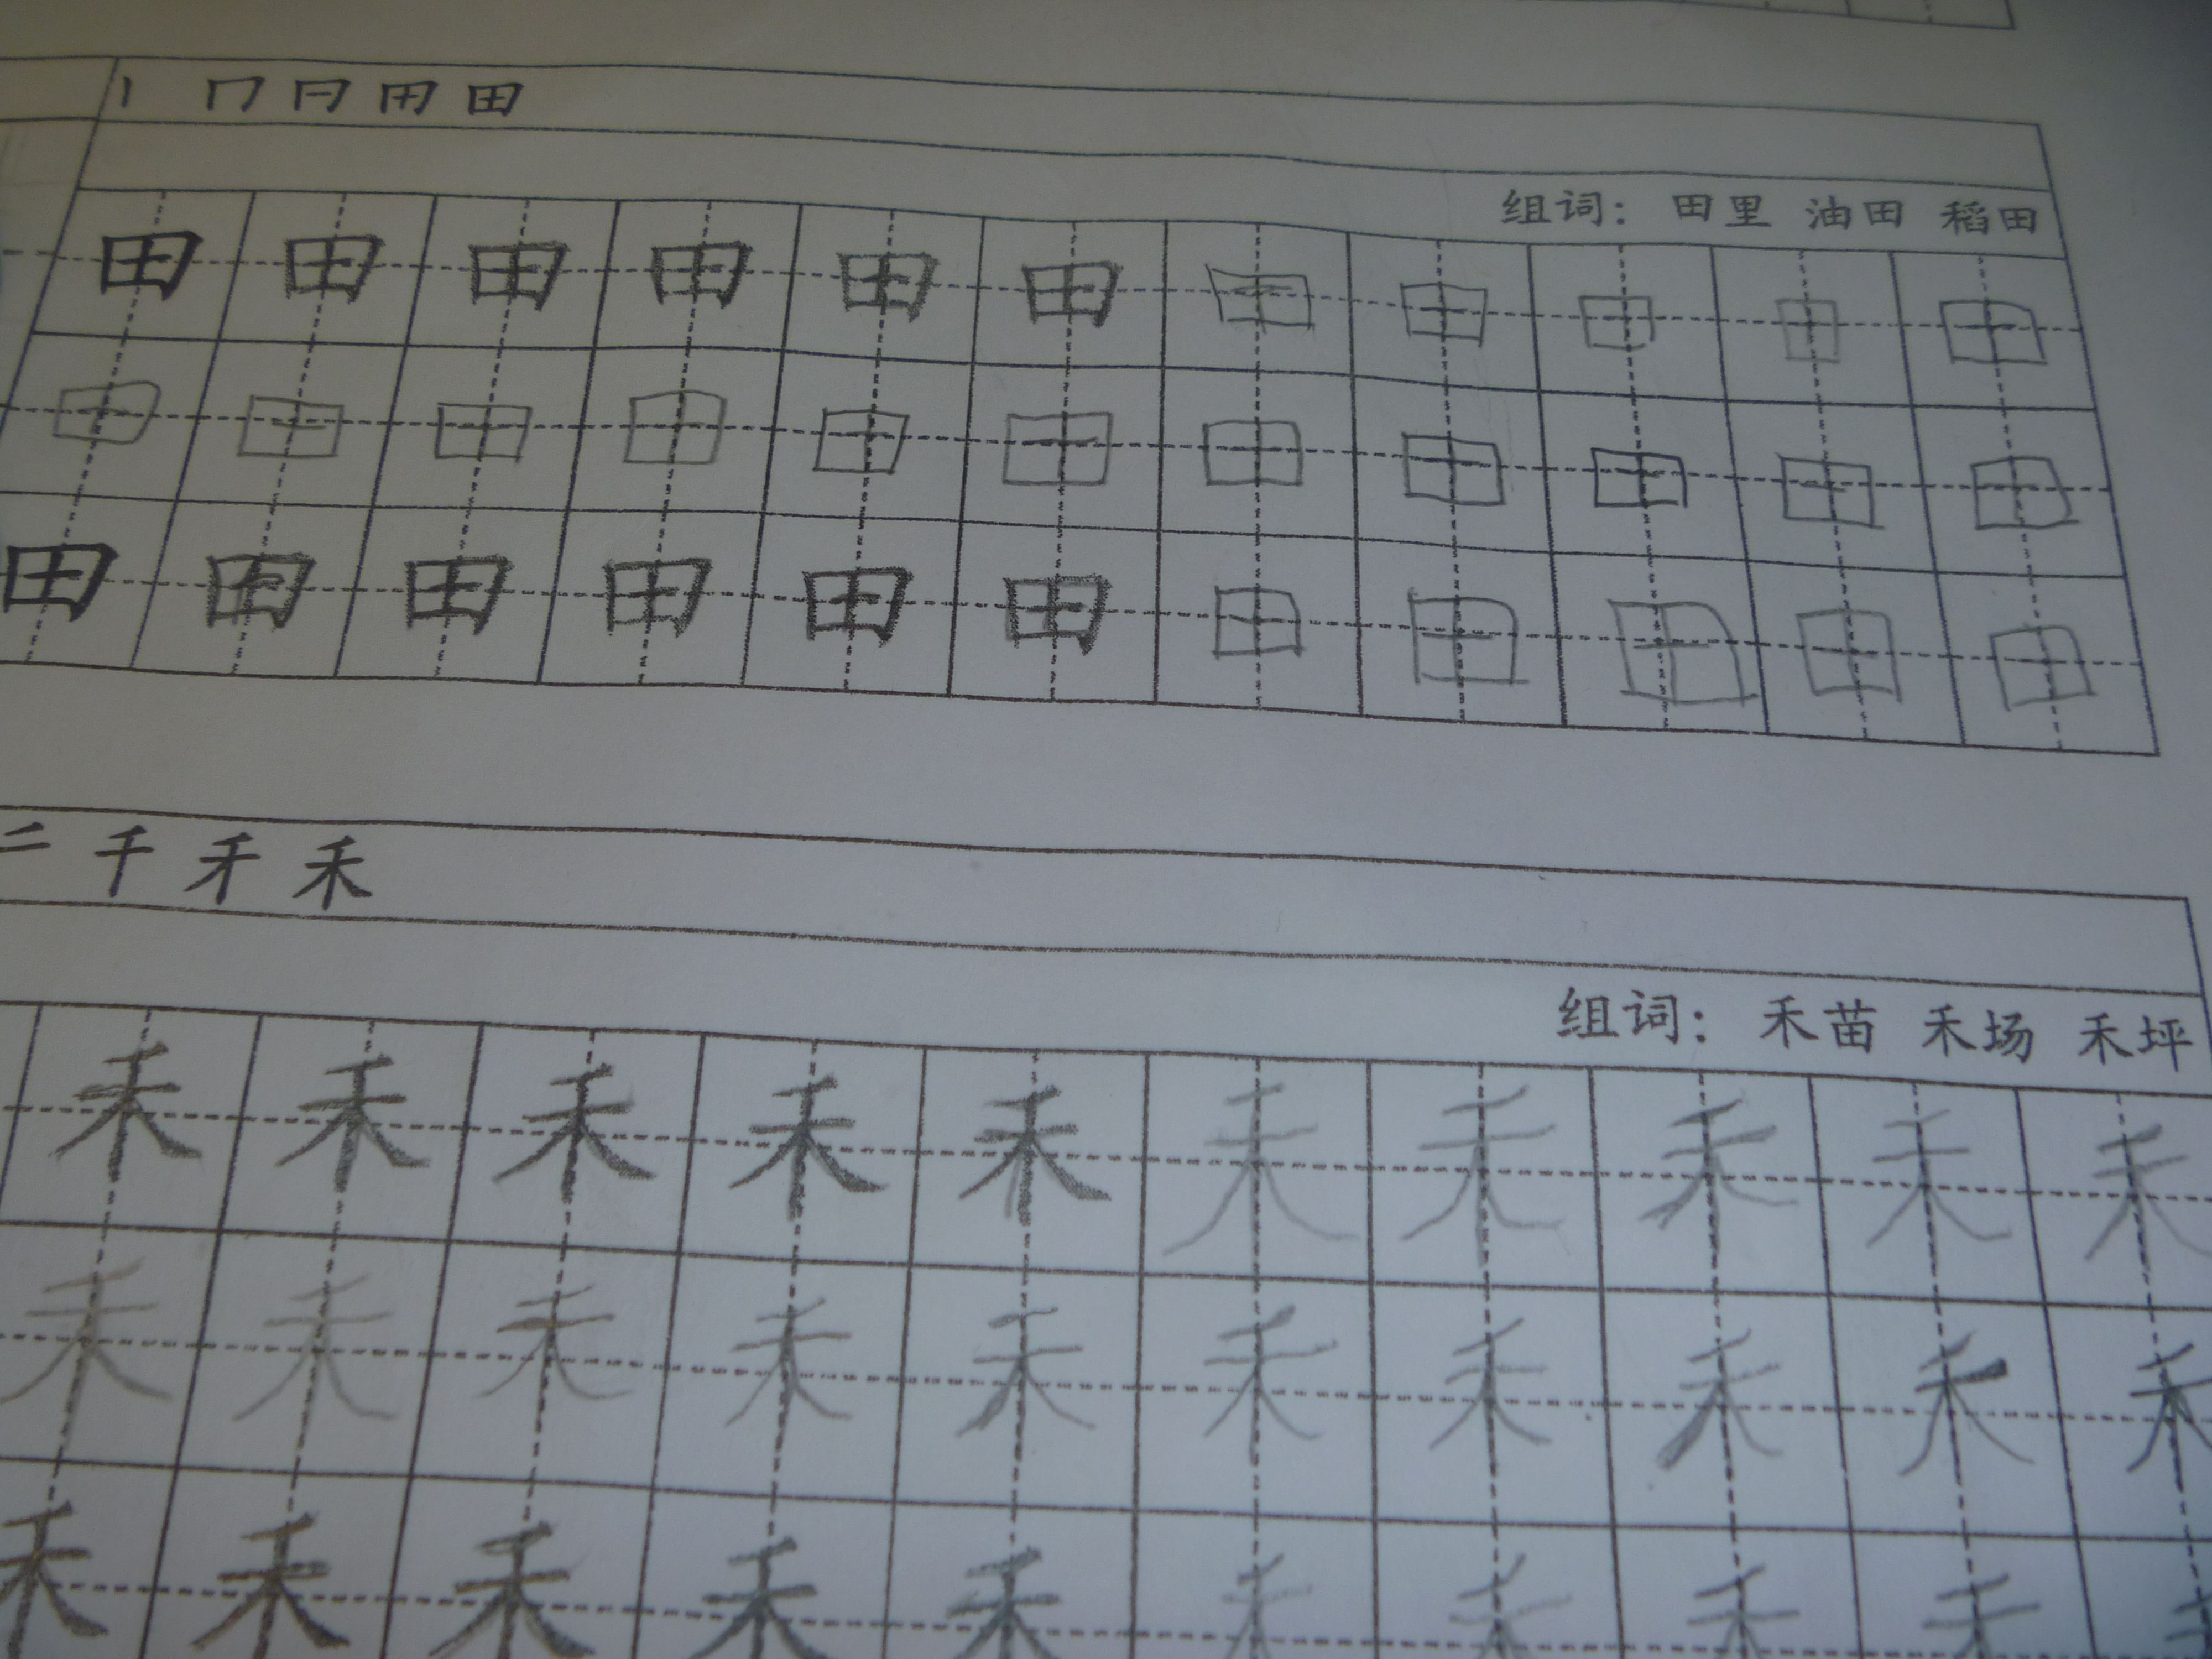 丨 冂 冃 田 田
组词：田里 油田 稻田
田 田 田 田 田 田 田 田 田 田 田
田 田 田 田 田 田 田 田 田 田 田
田 田 田 田 田 田 田 田 田 田 田
二 千 禾 禾
组词：禾苗 禾场 禾坪
禾 禾 禾 禾 禾 禾 禾 禾 禾 禾
禾 禾 禾 禾 禾 禾 禾 禾 禾 禾
禾 禾 禾 禾 禾 禾 禾 禾 禾